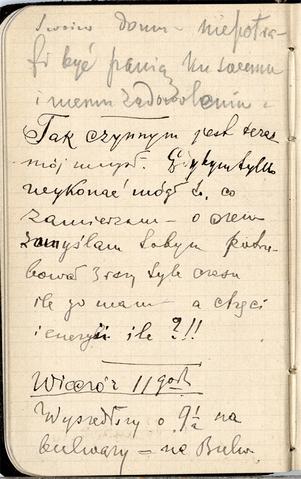 swoim domu – niepotra-
fi być panią ku swemu
i memu zadowoleniu –
Tak czynnym jest teraz
mój umysł. Gdybym tylko
wykonać mógł to, co
zamierzam – o czem
zamyślam tobym potrze-
bował 3 razy tyle czasu
ile go mam – a chęci
i energii ile ?!!
Wieczór 11 godz
Wyszedłszy o 9½ na
bulwary – na Bulw.